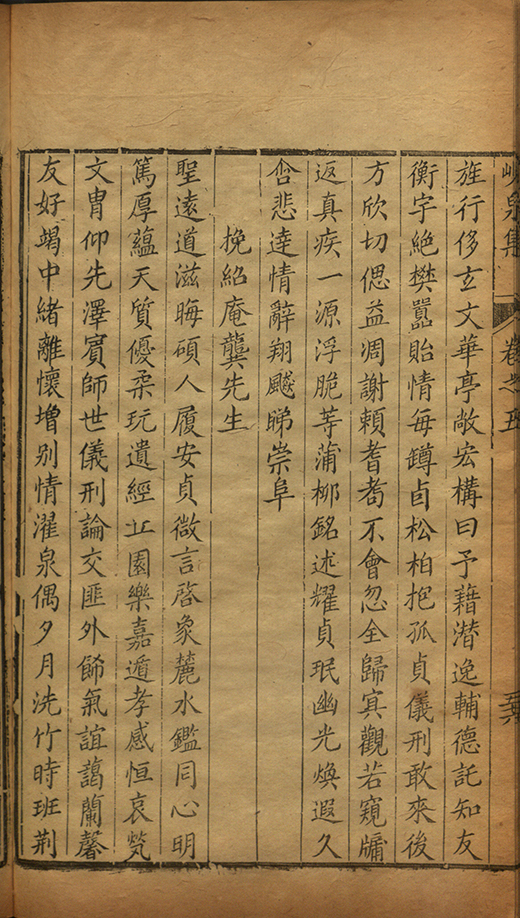 峴泉集 卷之五
旌行侈玄文華亭敞宏構曰予藉潜逸輔德託知友
衡宇絶樊囂貽情每罇卣松柏抱孤貞儀刑敢來後
方欣切偲益凋謝頼耆耇不會忽全歸冥觀若窺牖
返真疾一源浮脆等蒲柳銘述耀貞珉幽光煥遐久
含悲逹情辭翔飈睇崇阜
挽紹庵龔先生
聖遠道滋晦碩人履安貞微言啓象麓水鑑同心明
篤厚蘊天質優柔玩遺經丘園樂嘉遁孝感恒哀煢
文胄仰先澤賓師世儀刑論交匪外飾氣誼藹蘭馨
友好竭中緒離懷増别情濯泉偶夕月洗竹時班荆